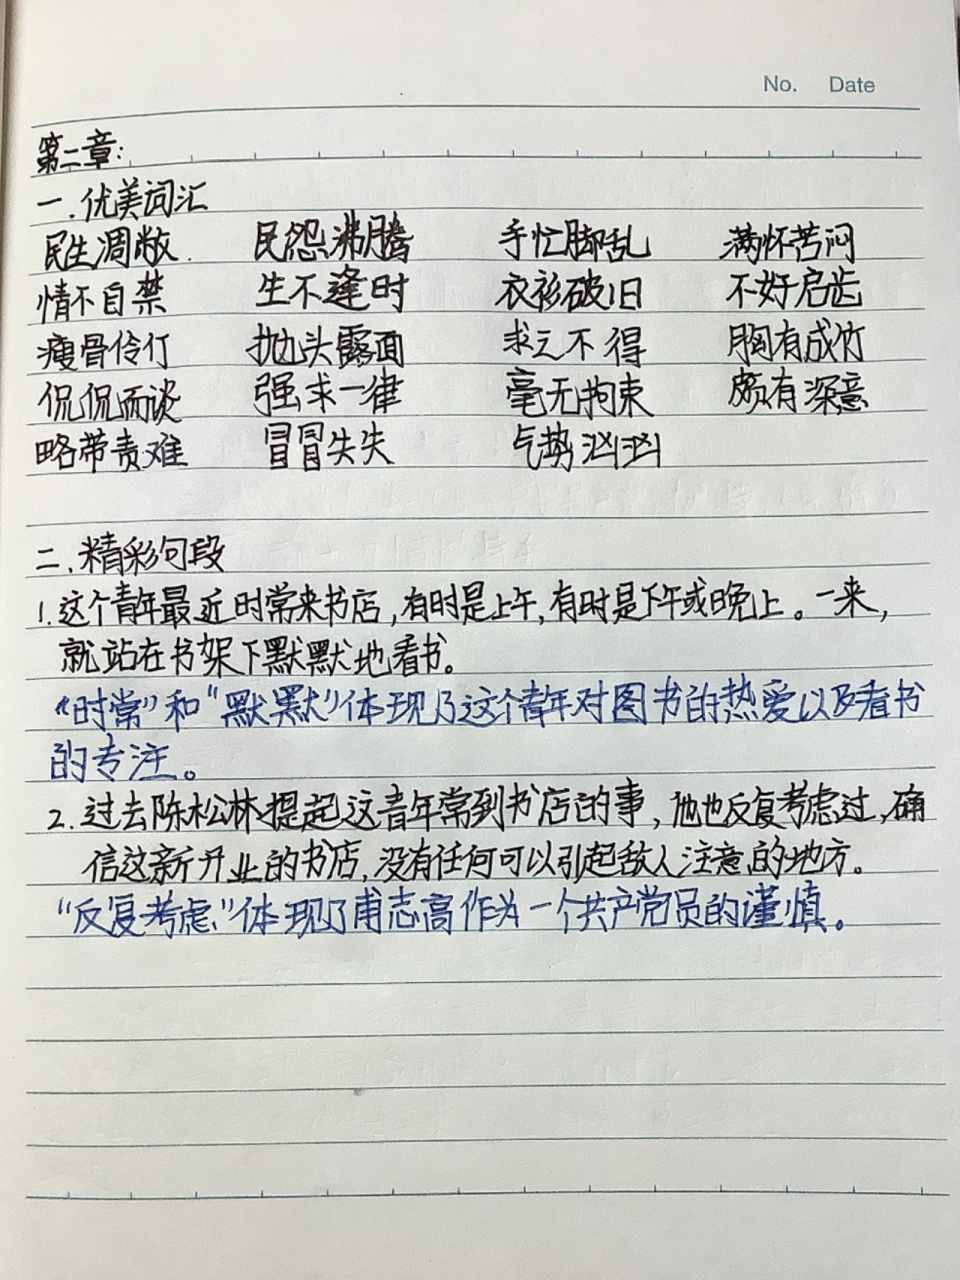 No. Date
第二章:
一.优美词汇
民生凋敝. 民怨沸腾 手忙脚乱 满怀苦闷
情不自禁 生不逢时 衣衫破旧 不好启齿
瘦骨伶仃 抛头露面 求之不得 胸有成竹
侃侃而谈 强求一律 毫无拘束 颇有深意
略带责难 冒冒失失 气势汹汹
二.精彩句段
1.这个青年最近时常来书店,有时是上午,有时是下午或晚上。一来,
就站在书架下默默地看书。
“时常”和“默默”体现了这个青年对图书的热爱以及看书
的专注。
2.过去陈松林提起这青年常到书店的事,他也反复考虑过,确
信这新开业的书店,没有任何可以引起敌人注意的地方。
“反复考虑”体现了甫志高作为一个共产党员的谨慎。